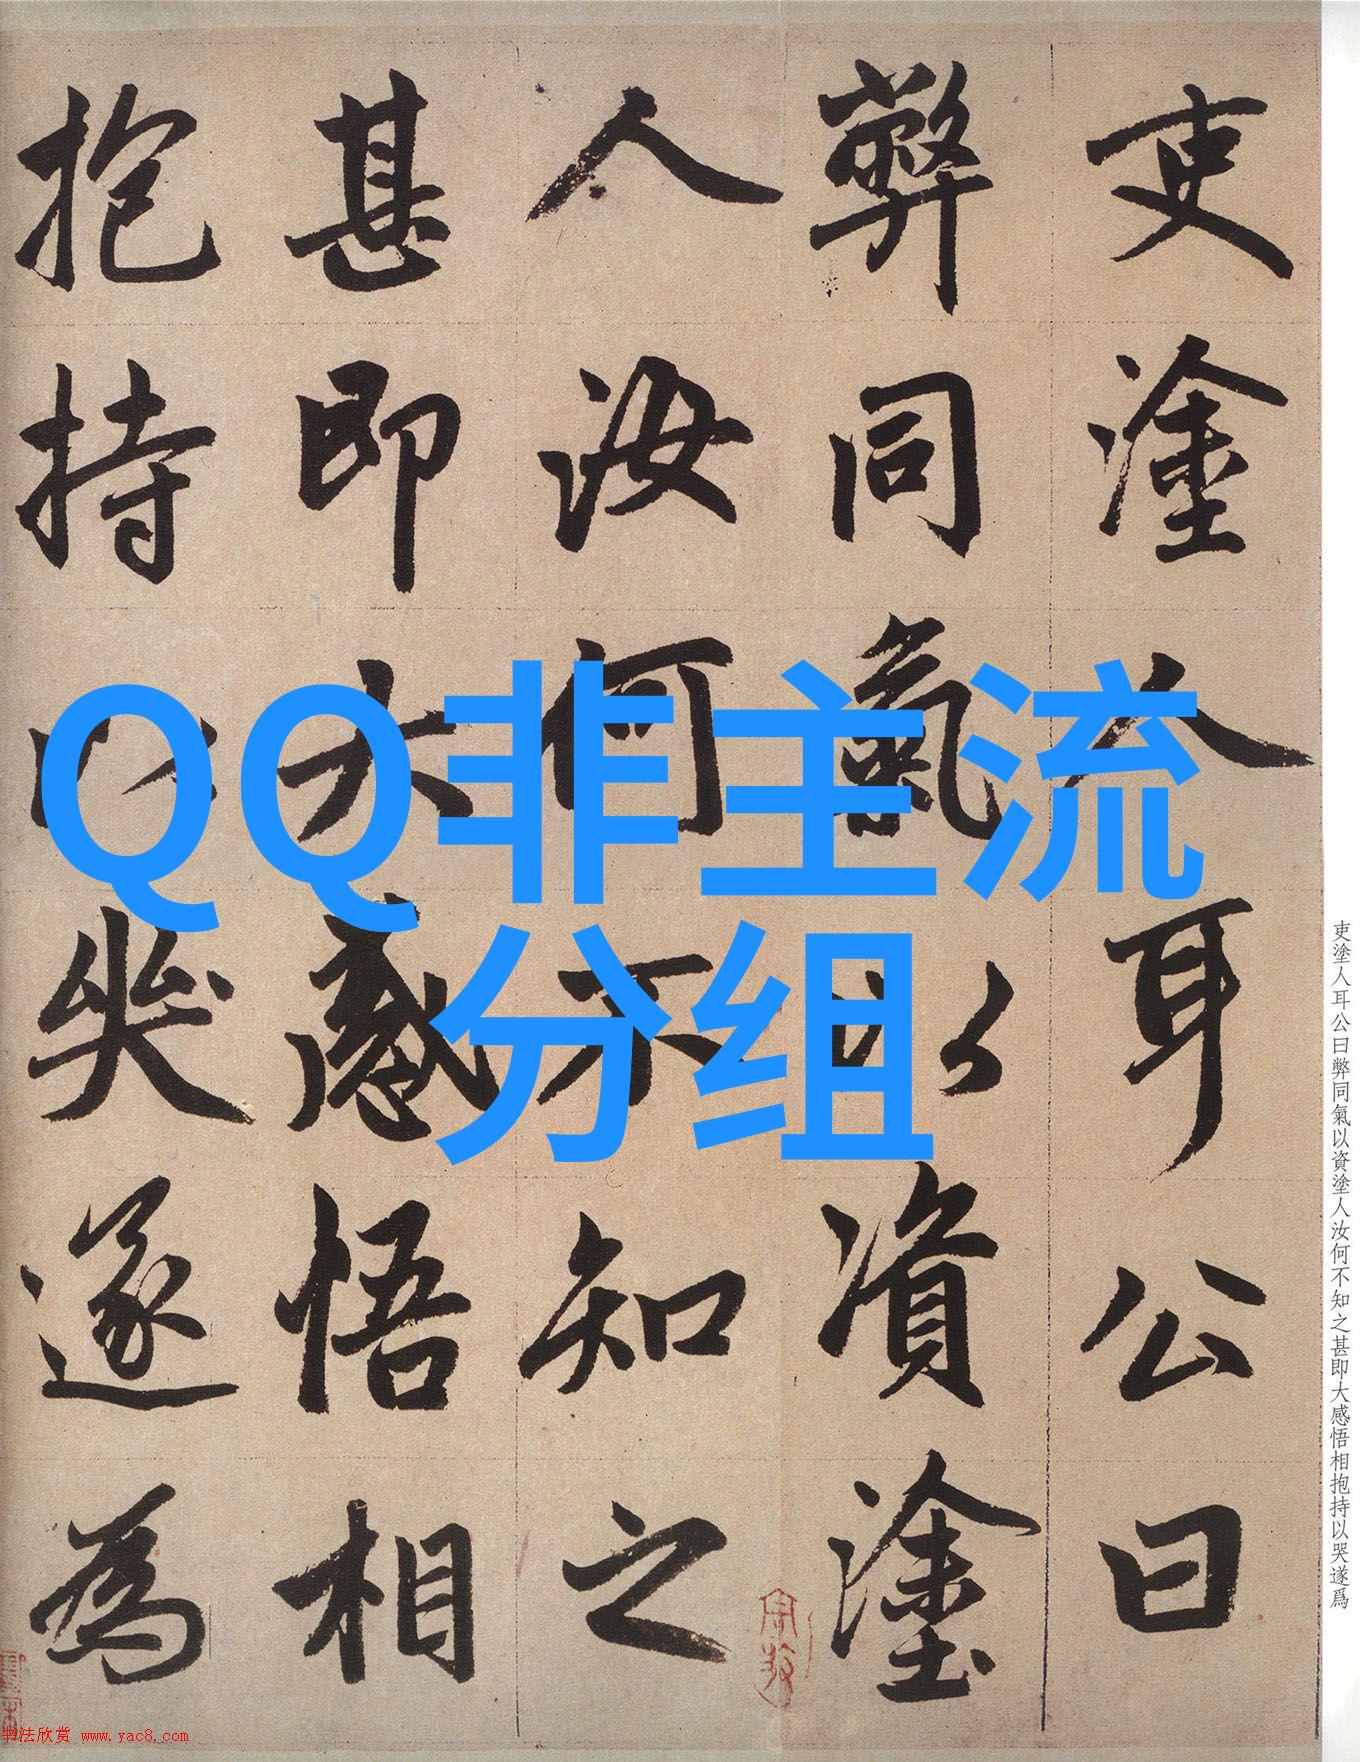 吏塗人耳公曰
弊同氣以資塗
人汝何不知之
甚即大感悟相
抱持以哭遂為
QQ非主流
分组
吏塗人耳公曰弊同氣以資塗人汝何不知之甚即大感悟相抱持以哭遂爲
书法欣赏 www.yac8.com